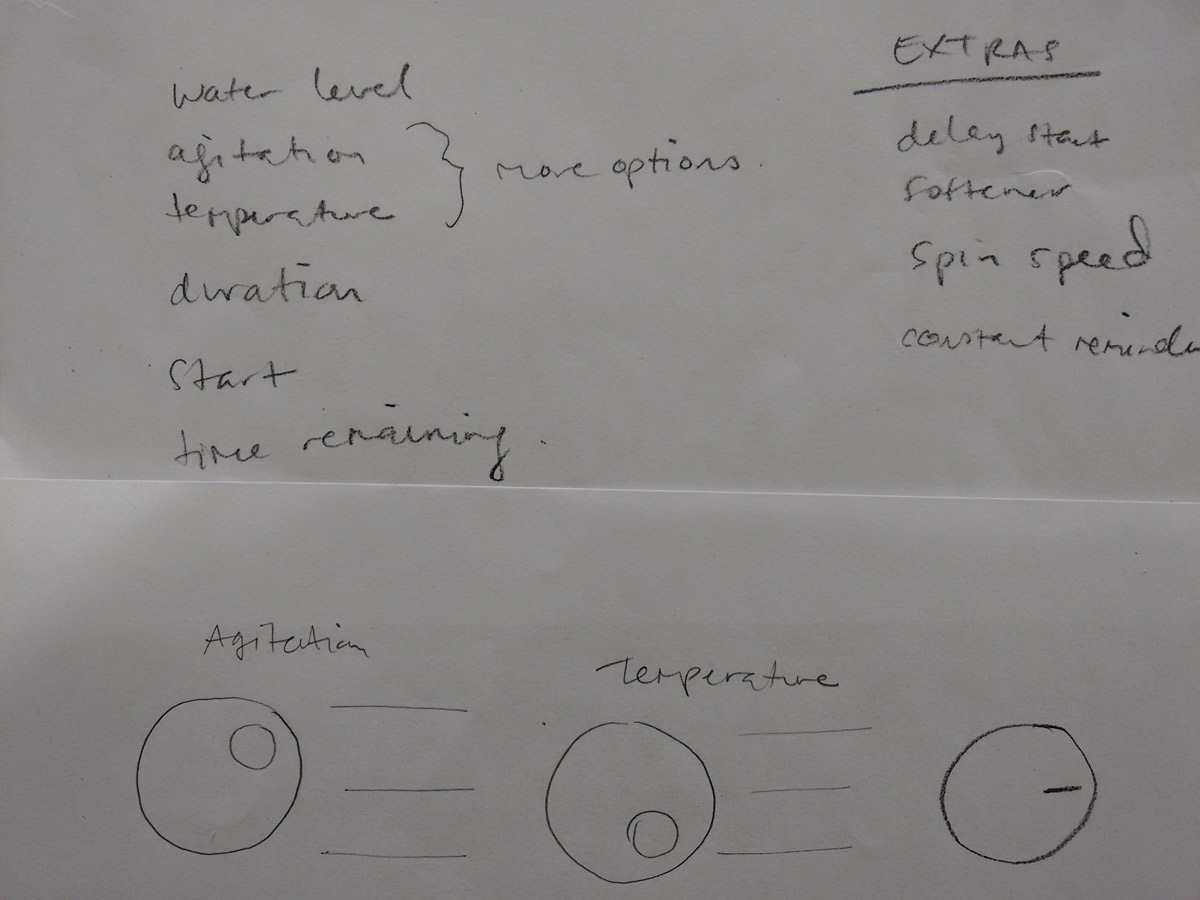 water level
agitation
temperature
more options.
duration
start
time remaining.
EXTRAS
delay start
softener
spin speed
constant
Agitation
Temperature